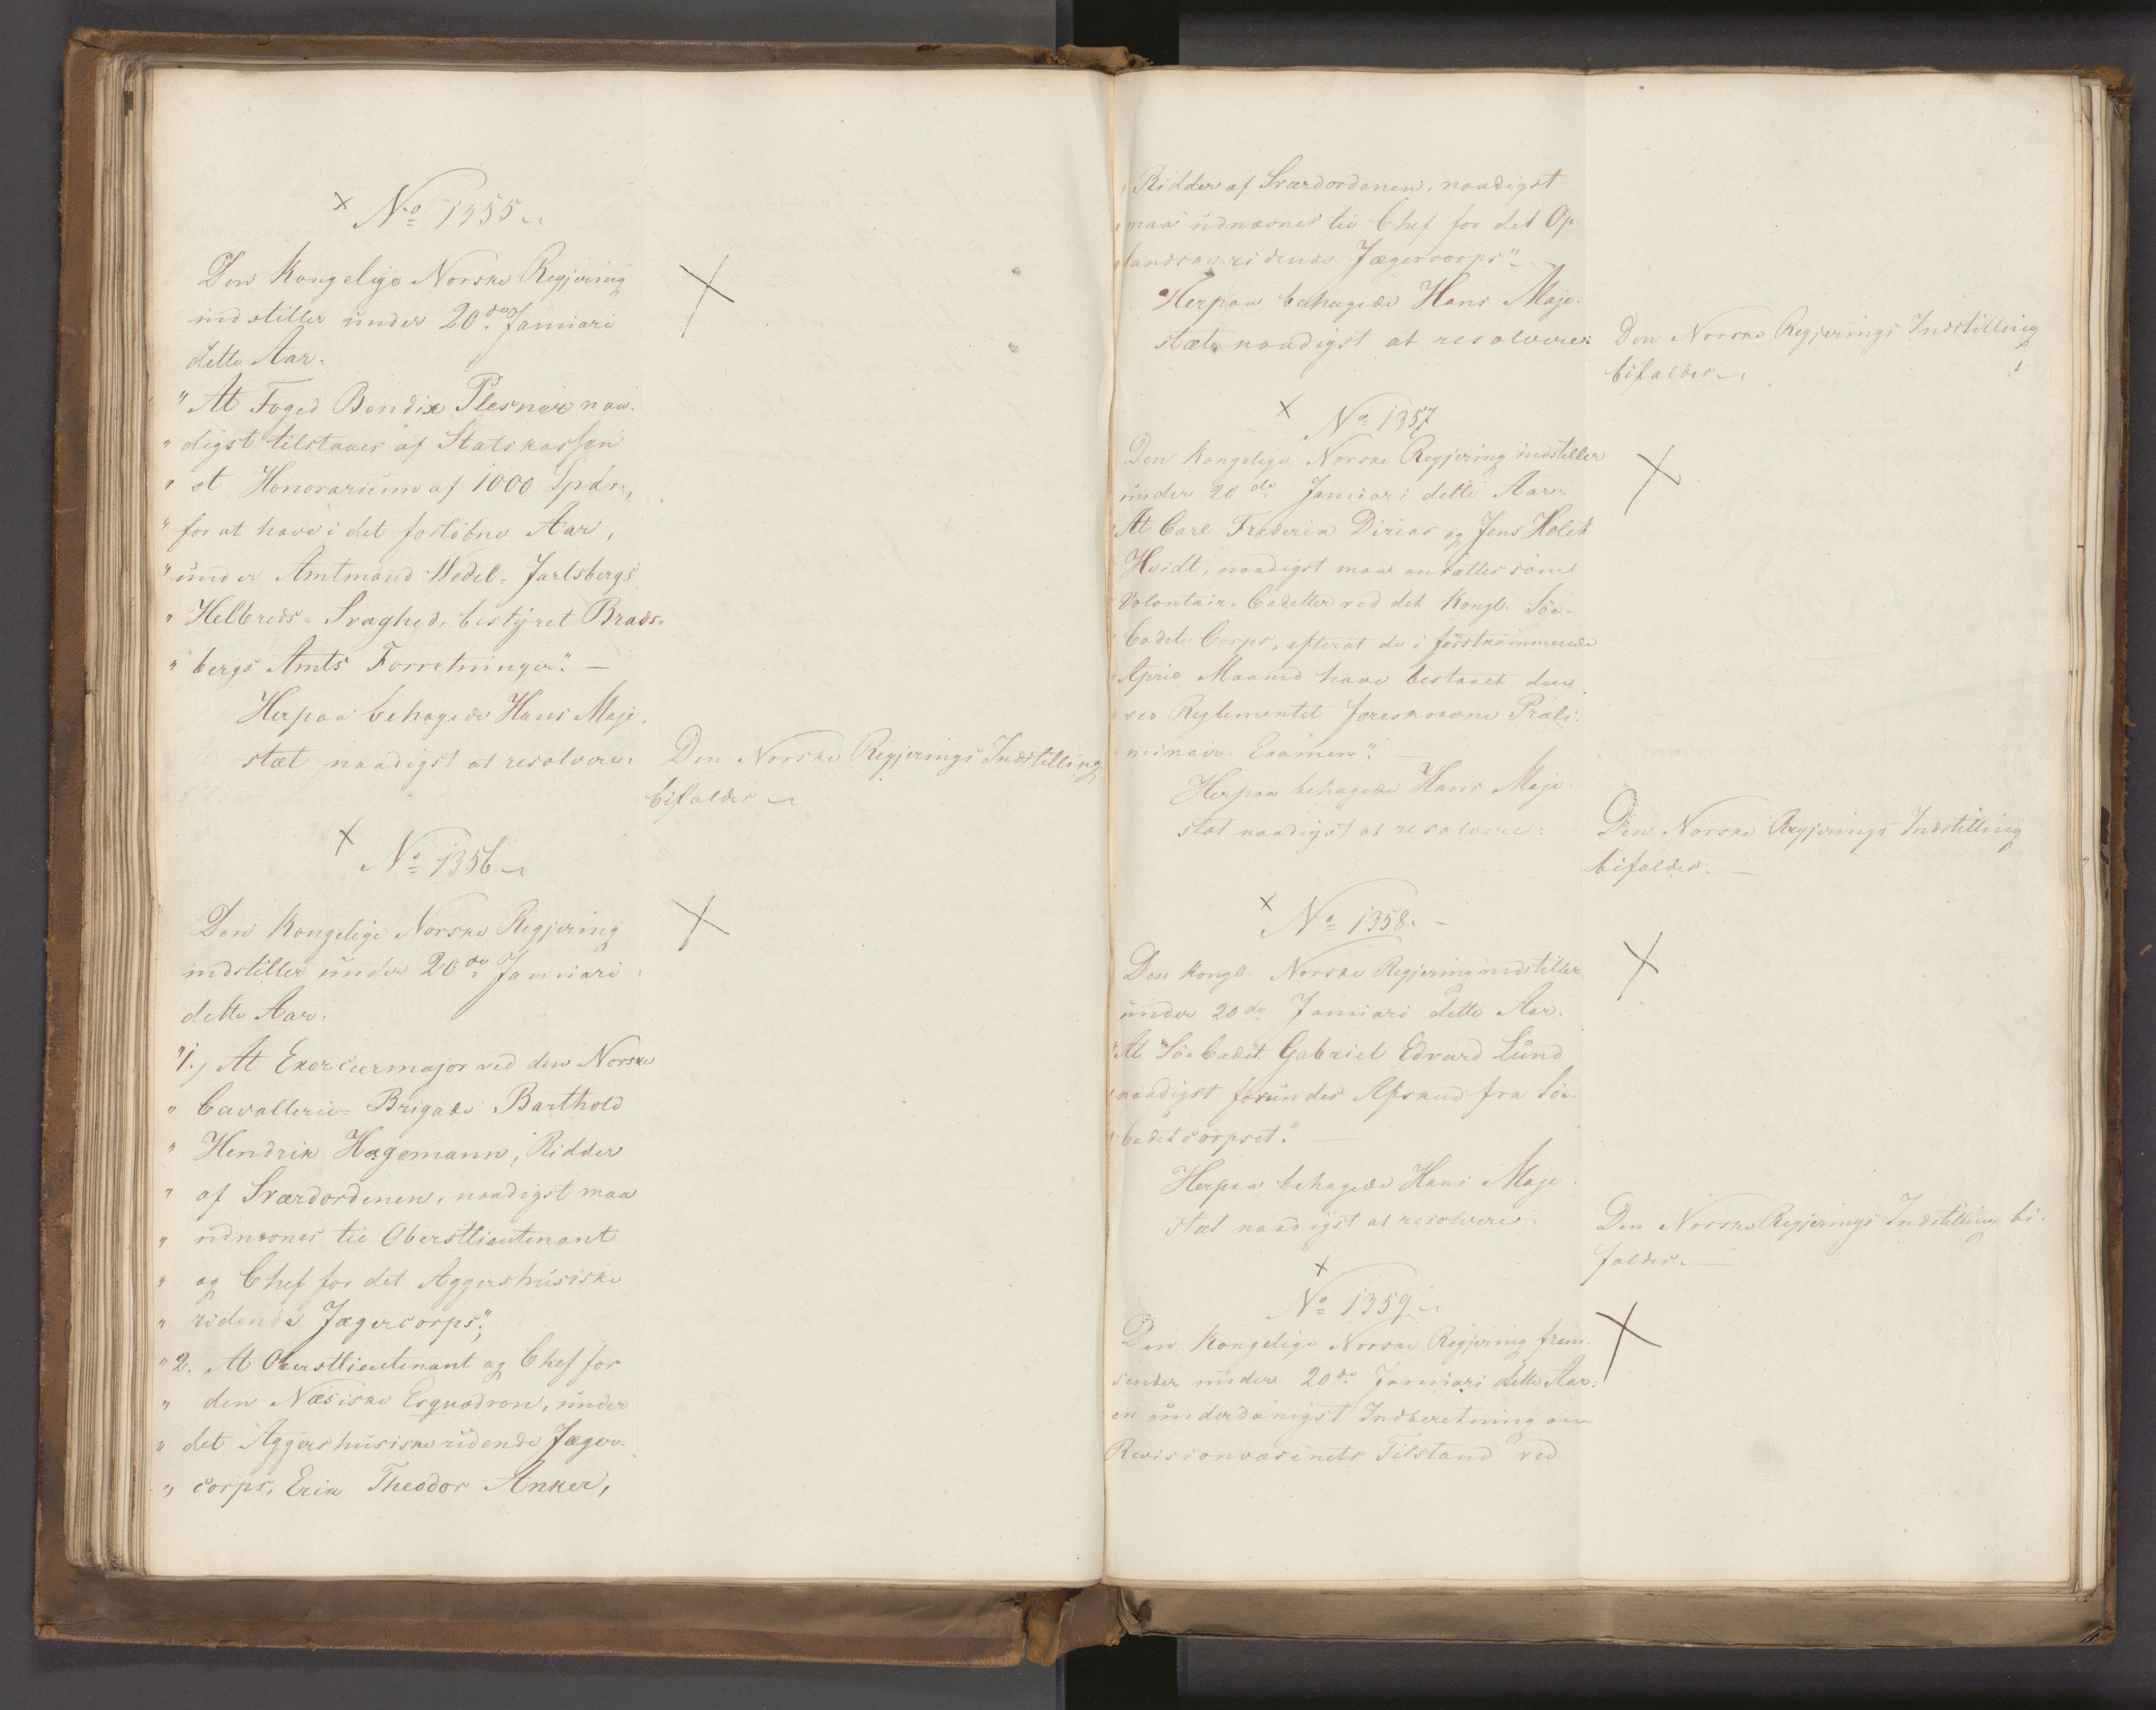 × No 1355
Den Kongelige Norske Regjering
indstiller under 20de Januari
dette Aar.
"At Foged Bendix Plesner naa-
" digst tilstaaes af Statskassen
" et Honorarium af 1000 Spdr:,
" for at have i det forløbne Aar,
" under Amtmand Wedel-Jarlsbergs
" Helbreds-Svaghed, bestyret Brads-
" bergs Amts Forretninger". —
Herpaa behagede Hans Maje-
stæt naadigst at resolvere:
Den Norske Regjerings Indstilling
bifaldes
× No 1356
Den Kongelige Norske Regjering
indstiller under 20de Januari
dette Aar.
"1.) At Exerceermajor ved den Norske
" Cavallerie-Brigade Barthold
" Hendrik Hagemann, Ridder
" af Sværdordenen, naadigst maa
" udnævnes til Oberstlieutenant
" og Chef for det Aggershusiske
" ridende Jægercorps";
"2. At Oberstlieutenant og Chef for
" den Næsiske Esquadron, under
" det Aggershusiske ridende Jæger-
" corps, Erik Theodor Anker,
" Ridder af Sværdordenen, naadigst
" maa udnævnes til Chef for det Op-
" landske ridende Jægercorps"
Herpaa behagede Hans Maje-
stæt naadigst at resolvere:
Den Norske Regjerings Indstilling
bifaldes
× No 1357
Den Kongelige Norske Regjering indstiller
under 20de Januari dette Aar.
"At Carl Frederik Diriks og Jens Holck
" Hvidt, naadigst maa ansættes som
" Volontair-Cadetter ved det Kongl. Söe-
" Cadet-Corps, efterat de i förstkommende
" April Maaned have bestaaet den
" ved Reglementet foreskrevne Præli-
" minair-Examen". —
Herpaa behagede Hans Maje-
stæt naadigst at resolvere:
Den Norske Regjerings Indstilling
bifaldes. —
× No 1358. —
Den Kongl. Norske Regjering indstiller
under 20de Januari dette Aar.
"At Söe Cadet Gabriel Edvard Lund
" naadigst forundes Afskeed fra Söe-
" Cadetcorpset." —
Herpaa behagede Hans Maje-
stæt naadigst at resolvere:
Den Norske Regjerings Indstilling bi-
faldes. —
×
No 1359
Den Kongelige Norske Regjering frem-
sender under 20de Januari dette Aar:
en underdanigst Indberetning om
Revisionvæsenets Tilstand ved